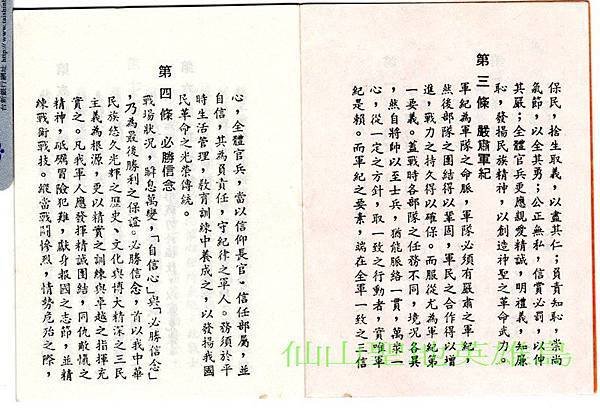 保民，捨生取義，以盡其仁；負責知恥，崇尚
氣節，以全其勇；公正無私，信賞必罰，以伸
其嚴；全體官兵更應親愛精誠，明禮義，知廉
恥，發揚民族精神，以創造神聖之革命武力。
第三條　嚴肅軍紀
軍紀為軍隊之命脈，軍隊必須有嚴肅之軍紀，
然後部隊之團結得以鞏固，軍民之合作得以增
進，戰力之持久得以確保。而服從尤為軍紀第
一要義。蓋戰時各部隊之任務不同，境況各異
，然自將師以至士兵，猶能脈絡一貫，萬眾一
心，從一定之方針，取一致之行動者，實唯軍
紀是賴。而軍紀之要素，端在全軍一致之互信
心，全體官兵，當以信仰長官，信任部屬，並
自信，其為負責任，守紀律之軍人。務須於平
時生活管理，教育訓練中養成之，以發揚我國
民革命之光榮傳統。
第四條　必勝信念
戰場狀況，瞬息萬變，「自信心」與「必勝信念」
，乃為最後勝利之保證。必勝信念，首以我中華
民族悠久光輝之歷史、文化與博大精深之三民
主義為根源，更以精實之訓練與卓越之指揮充
實之。凡我軍人應發揮精誠團結，同仇敵愾之
精神，砥礪冒險犯難，獻身報國之志節，並精
練戰術戰技。縱當戰鬥慘烈，情勢危殆之際，
仙山聖地英雄島